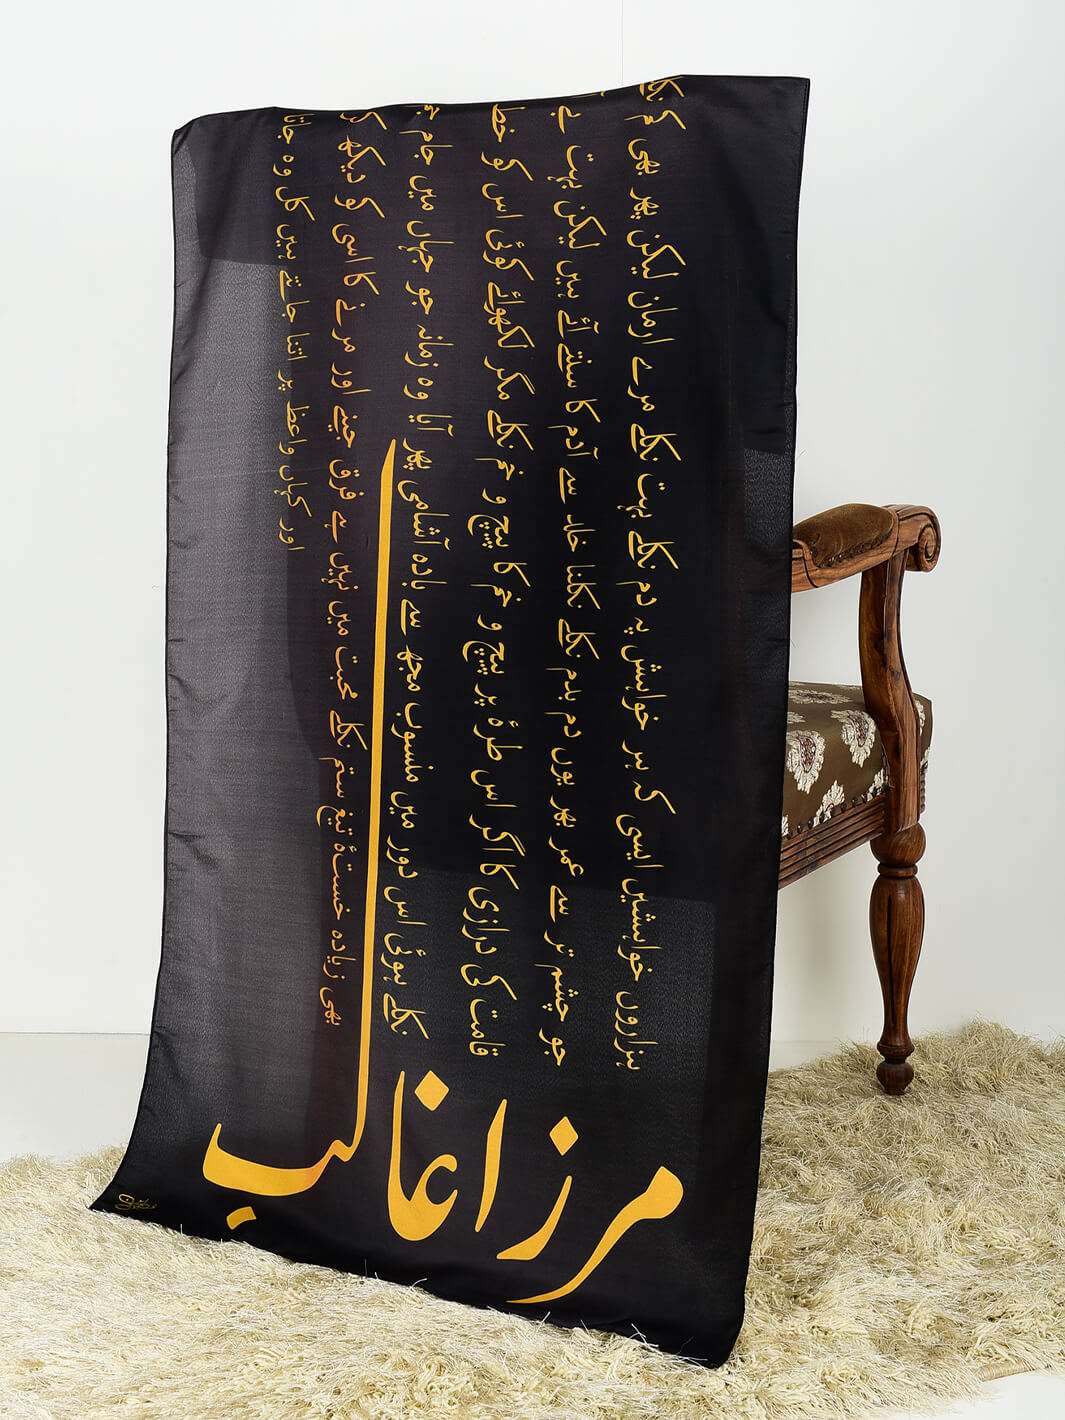 ہزاروں خواہشیں ایسی کہ ہر خواہش پہ دم نکلے بہت نکلے مرے ارمان لیکن پھر بھی کم نکلے
جو چشم تر سے عمر بھر یوں دم بدم نکلے نکلنا خلد سے آدم کا سنتے آئے ہیں لیکن بہت بے
قامت کی درازی کا اگر اس طرۂ پر پیچ و خم کا پیچ و خم نکلے مگر لکھوائے کوئی اس کو خط
نکلے ہوئی اس دور میں منسوب مجھ سے بادہ آشامی پھر آیا وہ زمانہ جو جہاں میں جام
بھی زیادہ خستۂ تیغ ستم نکلے محبت میں نہیں ہے فرق جینے اور مرنے کا اسی کو دیکھ کر
اور کہاں واعظ پر اتنا جانتے ہیں کل وہ جاتا
مرزا غالب